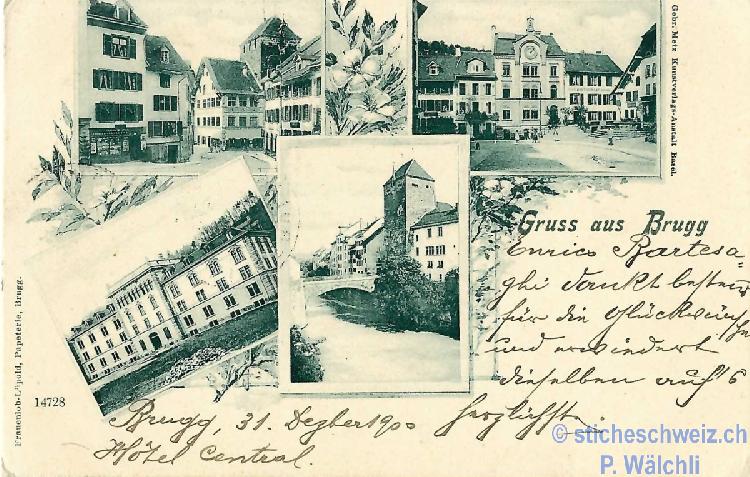 Gebr. Metz Kunstverlags-Anstalt Basel.
Gruss aus Brugg
Enrico Bartesa-
ghi dankt bestens
für die Glückwünsche
und erwiedert
dieselben auf's
herzlichste.
Brugg, 31. Dezber 1900
Hôtel Central.
14728
Frauenlob-Lüpold, Papeterie, Brugg.
© sticheschweiz.ch
P. Wälchli